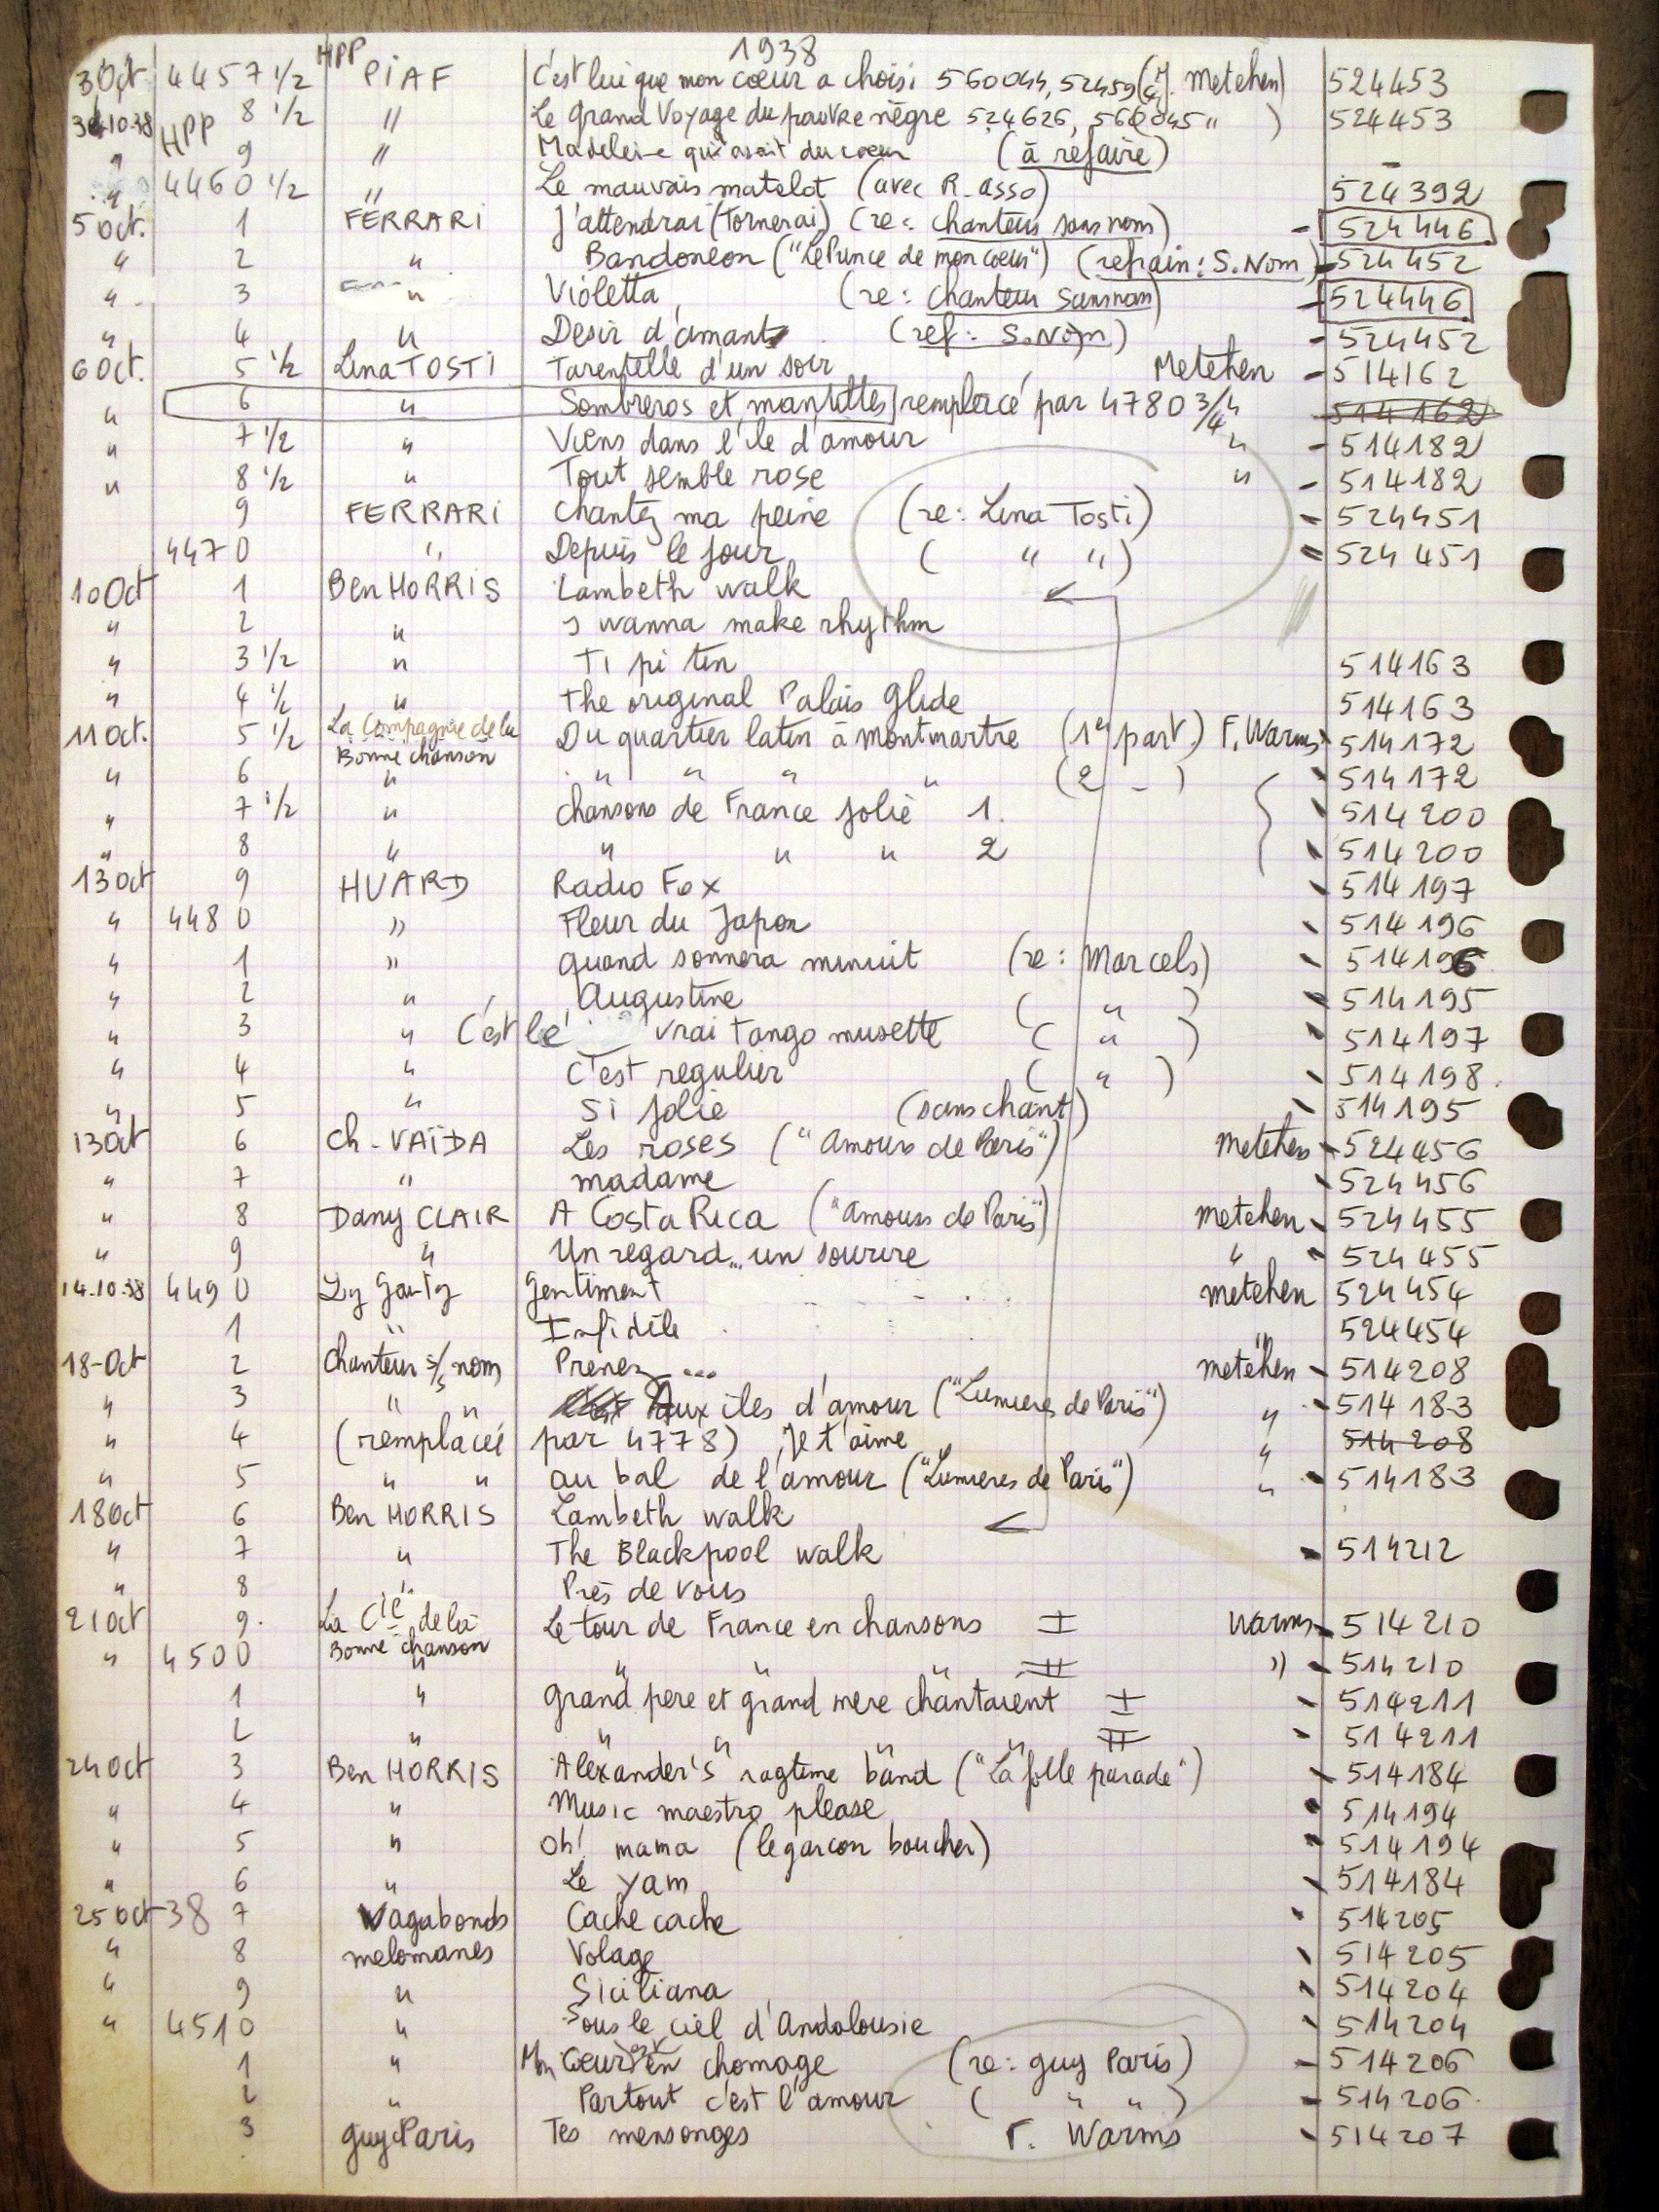 1938
3 Oct 4457 1/2 HPP PIAF C'est lui que mon coeur a choisi 560044, 52459 (J. Metehen) 524453
3.10.38 HPP 8 1/2 " Le Grand Voyage du pauvre nègre 524626, 560045 " ) 524453
" 9 " Madeleine qui avait du coeur (à refaire) -
" 4460 1/2 " Le mauvais matelot (avec R. Asso) 524392
5 Oct. 1 FERRARI J'attendrai (Tornerai) (re: chanteur sans nom) - 524446
" 2 " Bandonéon ("Le Prince de mon coeur") (refrain: S. Nom) - 524452
" 3 " Violetta (re: chanteur sans nom) - 524446
" 4 " Desir d'amant (ref: S. Nom) - 524452
6 Oct. 5 1/2 Lina TOSTI Tarentelle d'un soir Metehen - 514162
" 6 " Sombreros et mantilles remplacé par 4780 3/4 " 514162
" 7 1/2 " Viens dans l'île d'amour " - 514182
" 8 1/2 " Tout semble rose " - 514182
9 FERRARI Chantez ma peine (re: Lina Tosti) - 524451
4470 " Depuis le jour ( " " ) - 524451
10 Oct 1 Ben HORRIS Lambeth walk
" 2 " I wanna make rhythm
" 3 1/2 " Ti pi tin 514163
" 4 1/2 " The original Palais Glide 514163
11 Oct. 5 1/2 La Compagnie de la Du quartier latin à Montmartre (1e part) F. Warms 514172
Bonne chanson
" 6 " " " " " (2 - ) 514172
" 7 1/2 " Chansons de France jolie 1. 514200
" 8 " " " " 2 514200
13 Oct 9 HUARD Radio Fox 514197
" 4480 " Fleur du Japon 514196
" 1 " Quand sonnera minuit (re: Marcels) 514196
" 2 " Augustine ( " ) 514195
" 3 " C'est le vrai tango musette ( " ) 514197
" 4 " C'est regulier ( " ) 514198
" 5 " Si jolie (sans chant) 514195
13 Oct 6 Ch. VAÏDA Les roses ("Amours de Paris") Metehen 524456
" 7 " Madame 524456
" 8 Dany CLAIR A Costa Rica ("Amours de Paris") Metehen 524455
" 9 " Un regard... un sourire " 524455
14.10.38 4490 Lys Gauty Gentiment Metehen 524454
1 " Infidèle " 524454
18-Oct 2 Chanteur s/s nom Prenez ... Metehen - 514208
" 3 " " Aux îles d'amour ("Lumieres de Paris") " 514183
" 4 (remplacée par 4778) Je t'aime " 514208
" 5 " " Au bal de l'amour ("Lumieres de Paris") " 514183
18 Oct 6 Ben HORRIS Lambeth walk
" 7 " The Blackpool walk 514212
" 8 " Près de vous
21 Oct 9. La Cie de la Le tour de France en chansons I Warms 514210
Bonne chanson
" 4500 " " " " II " 514210
1 " Grand pere et grand mere chantaient I 514211
2 " " " " " II 514211
24 Oct 3 Ben HORRIS Alexander's ragtime band ("La folle parade") 514184
" 4 " Music maestro please 514194
" 5 " Oh! mama (le garcon boucher) 514194
" 6 " Le Yam 514184
25 Oct 38 7 Vagabonds Cache cache 514205
" 8 melomanes Volage 514205
" 9 " Siciliana 514204
" 4510 " Sous le ciel d'Andalousie 514204
1 " Mon Coeur est en chomage (re: Guy Paris) 514206
2 " Partout c'est l'amour ( " " ) 514206
3 Guy Paris Tes mensonges F. Warms 514207